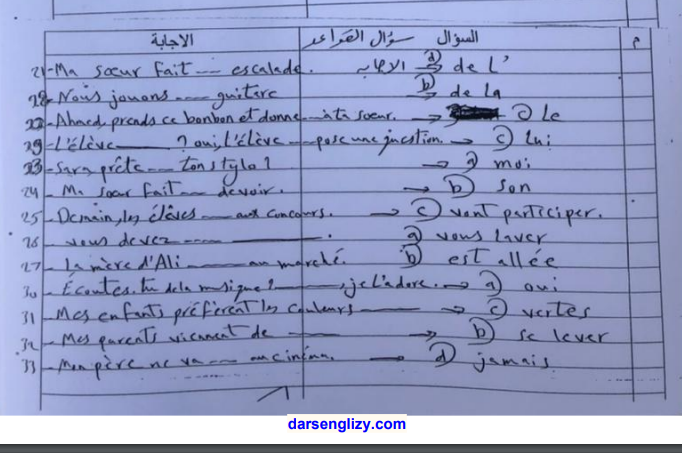 م السؤال سؤال القواعد الاجابة
21-Ma sœur fait --- escalade. الاجابه a) de l'
28-Nous jouons ---- guitare → b) de la
22-Ahmed, prends ce bonbon et donne---à ta sœur. → c) le
29-L'élève ____? oui, l'élève ---pose une question. → c) lui
23-Sara prête --- ton stylo? → a) moi
24- Ma sœur fait --- devoir. → b) son
25-Demain, les élèves --- aux concours. → c) vont participer.
26- vous devez --- ____. a) vous laver
27- La mère d'Ali --- au marché. b) est allée
30- Écoutes-tu de la musique? ---, je l'adore. → a) oui
31-Mes enfants préfèrent les couleurs ---- → c) vertes
32- Mes parents viennent de ---- → b) se lever
33-Mon père ne va --- au cinéma. → a) jamais
darsenglizy.com